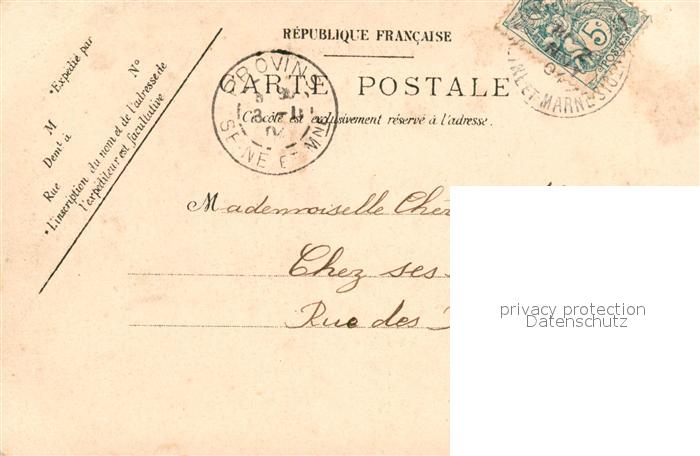 RÉPUBLIQUE FRANÇAISE
CARTE POSTALE
Ce côté est exclusivement réservé à l'adresse.
• Expédié par
M
Demt à
Rue N°
• L'inscription du nom et de l'adresse de
l'expéditeur est facultative
PROVINS
SEINE ET MNE
5c
POSTES
ET-MARNE
Mademoiselle
Chez ses
Rue des
privacy protection
Datenschutz